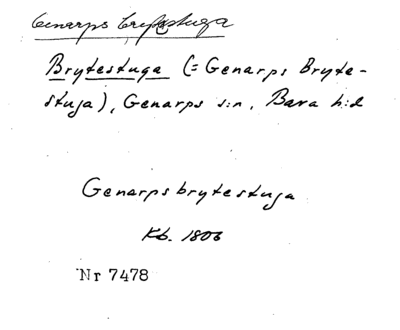 Genarps Brytestuga
Brytestuga (= Genarps Bryte-
stuga), Genarps s:n, Bara h:d
Genarpsbrytestuga
Kb. 1806
Nr 7478